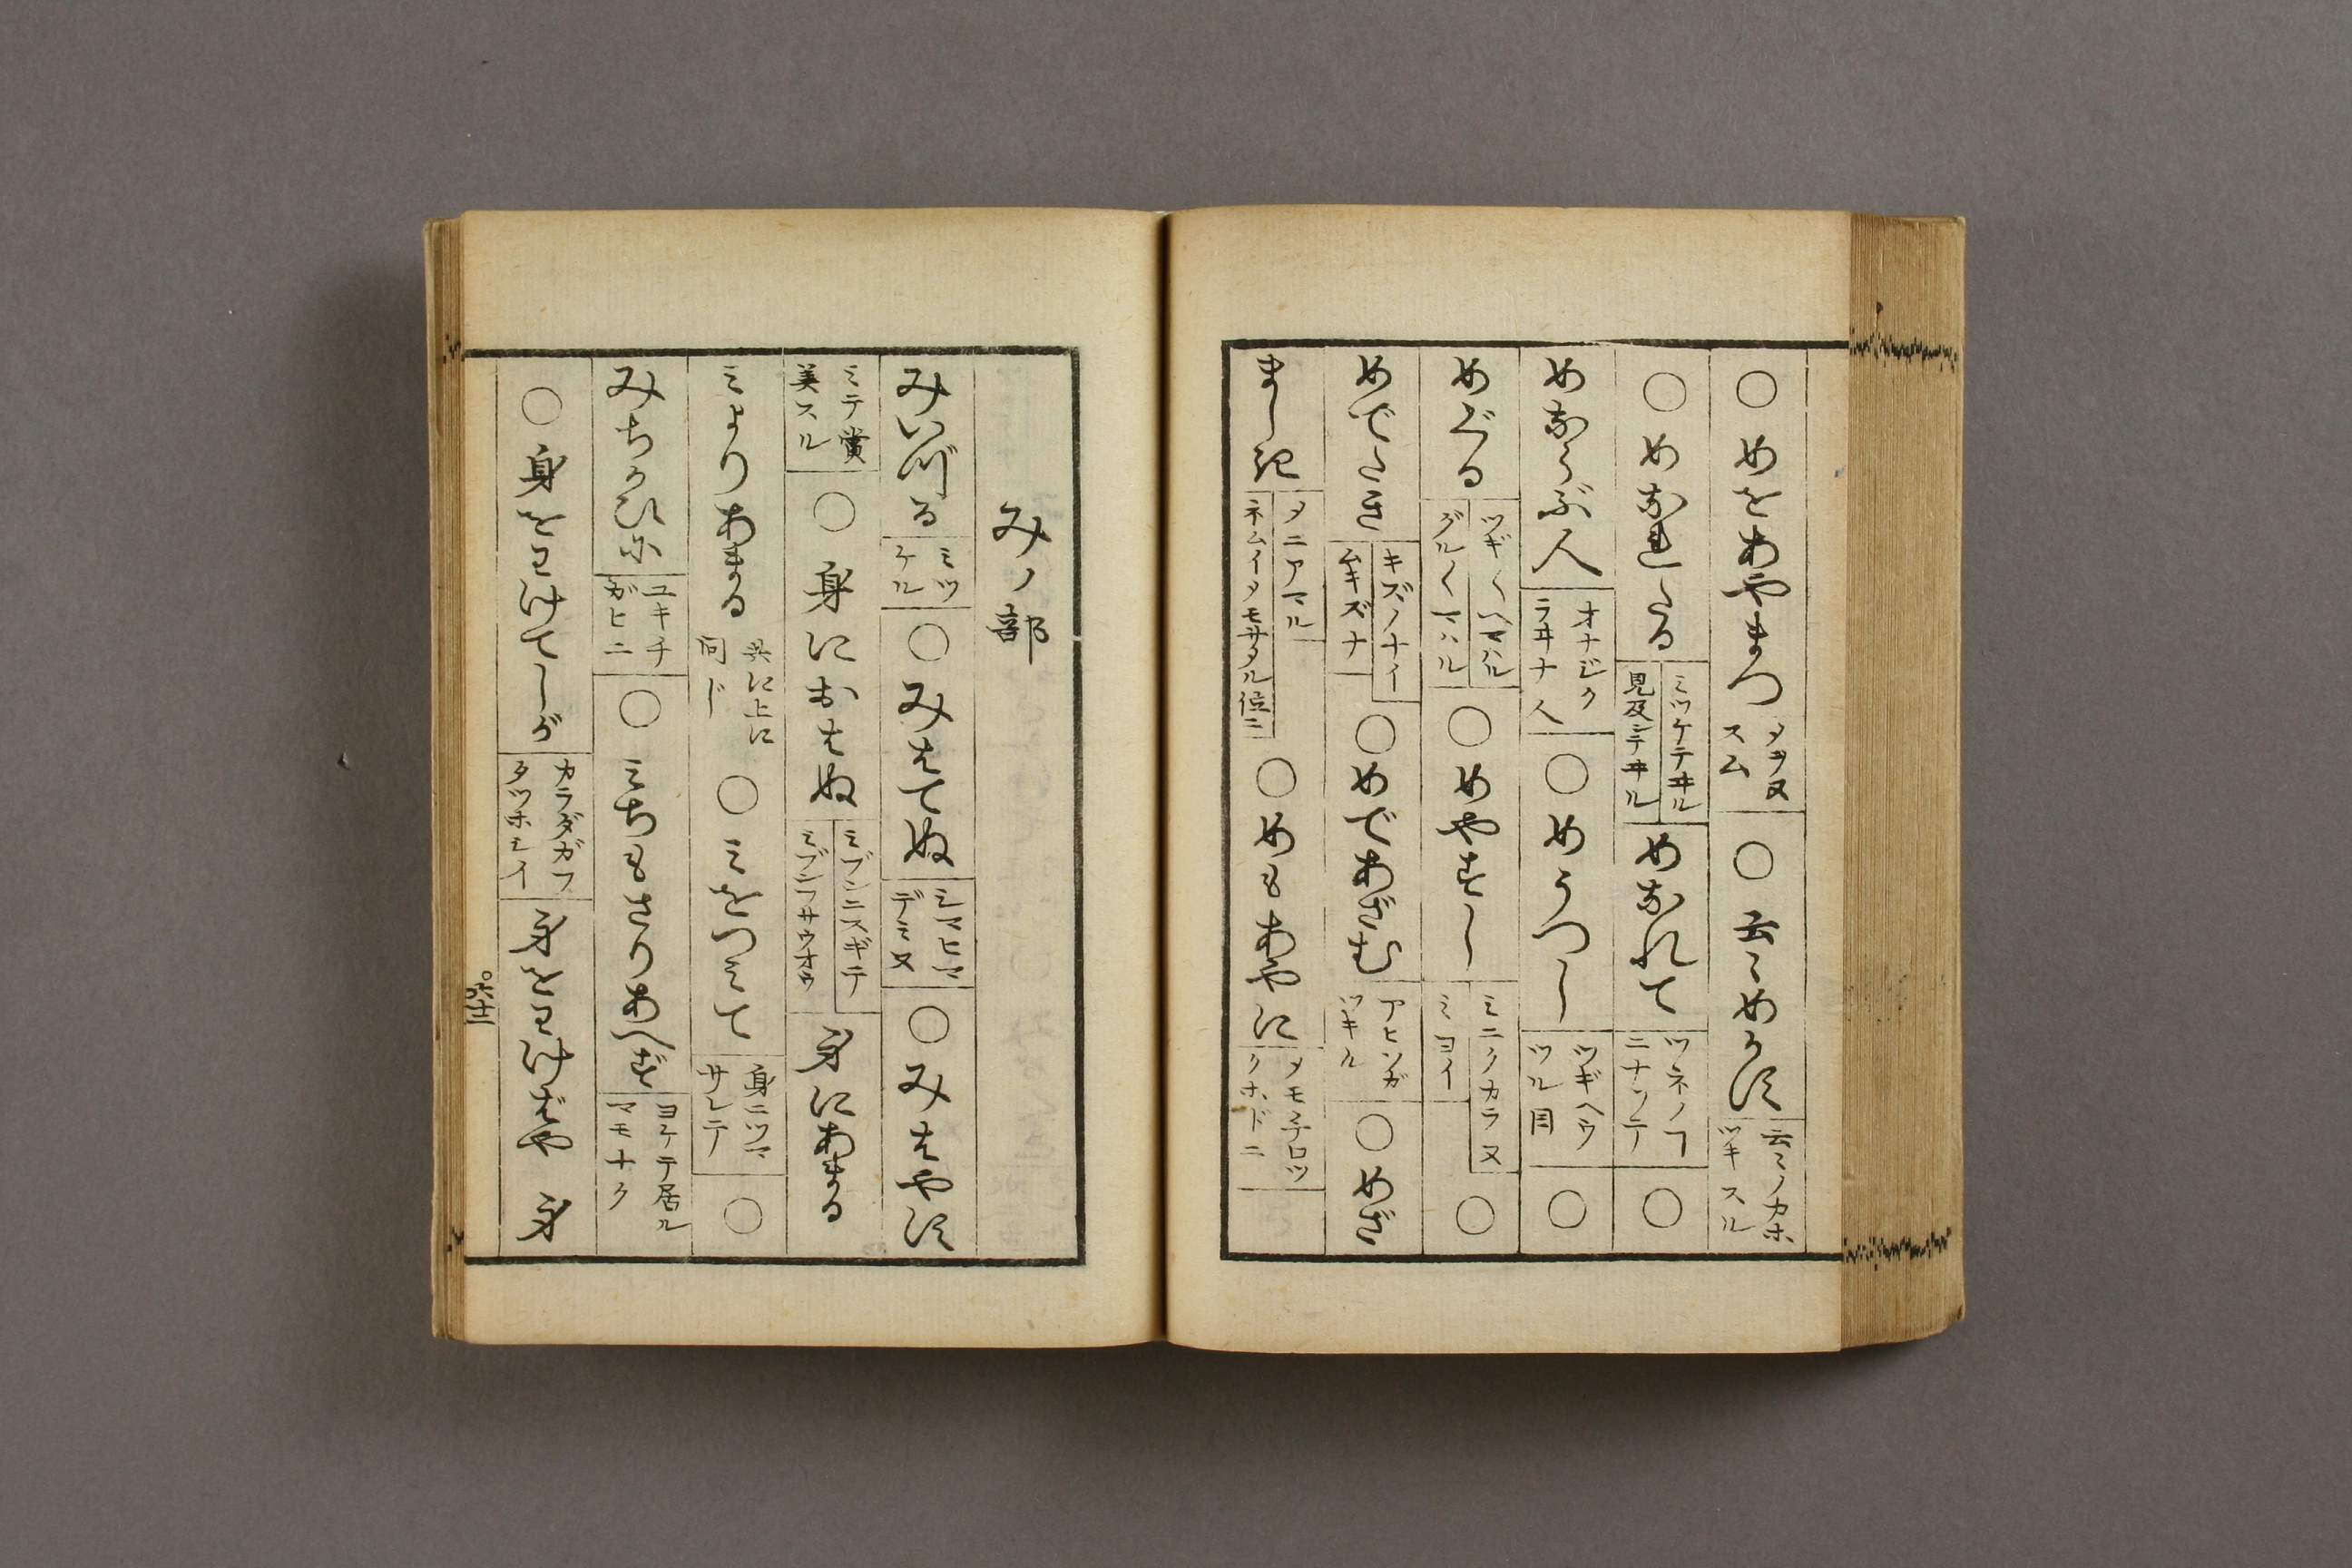 ○めをあやまつ メヲヌスム ○云〻めかす 云〻ノカホツキスル
○めなれたる ミツケテヰル 見及シテヰル めなれて ツネノコニナツテ ○
めならぶ人 オナジクラヰナ人 ○めうつし ツギヘウツル目 ○
めぐる ツギ〳〵ヘマハル グル〳〵マハル ○めやすし ミニクカラヌ ミヨイ ○
めでたき キズノナイ ムキズナ ○めであざむ アヒソガツキル ○めざ
まし記 メニアマル ネムイメモサメル位ニ ○めもあやに メモ子ロツクホドニ
みノ部
みいづる ミツケル ○みはてぬ シマヒマデミヌ ○みはやす
ミテ賞美スル ○身におはぬ ミブンニスギテ ミブンフサウオウ 身にあまる
ミよりあまる 共に上に同じ ○ミをつミて 身ニツマサレテ ○
みちかひに ユキチガヒニ ○ミちもさりあへず ヨケテ居ルマモナク
○身をわけてしが カラダガフタツホシイ 身をわけばや 身
六十二